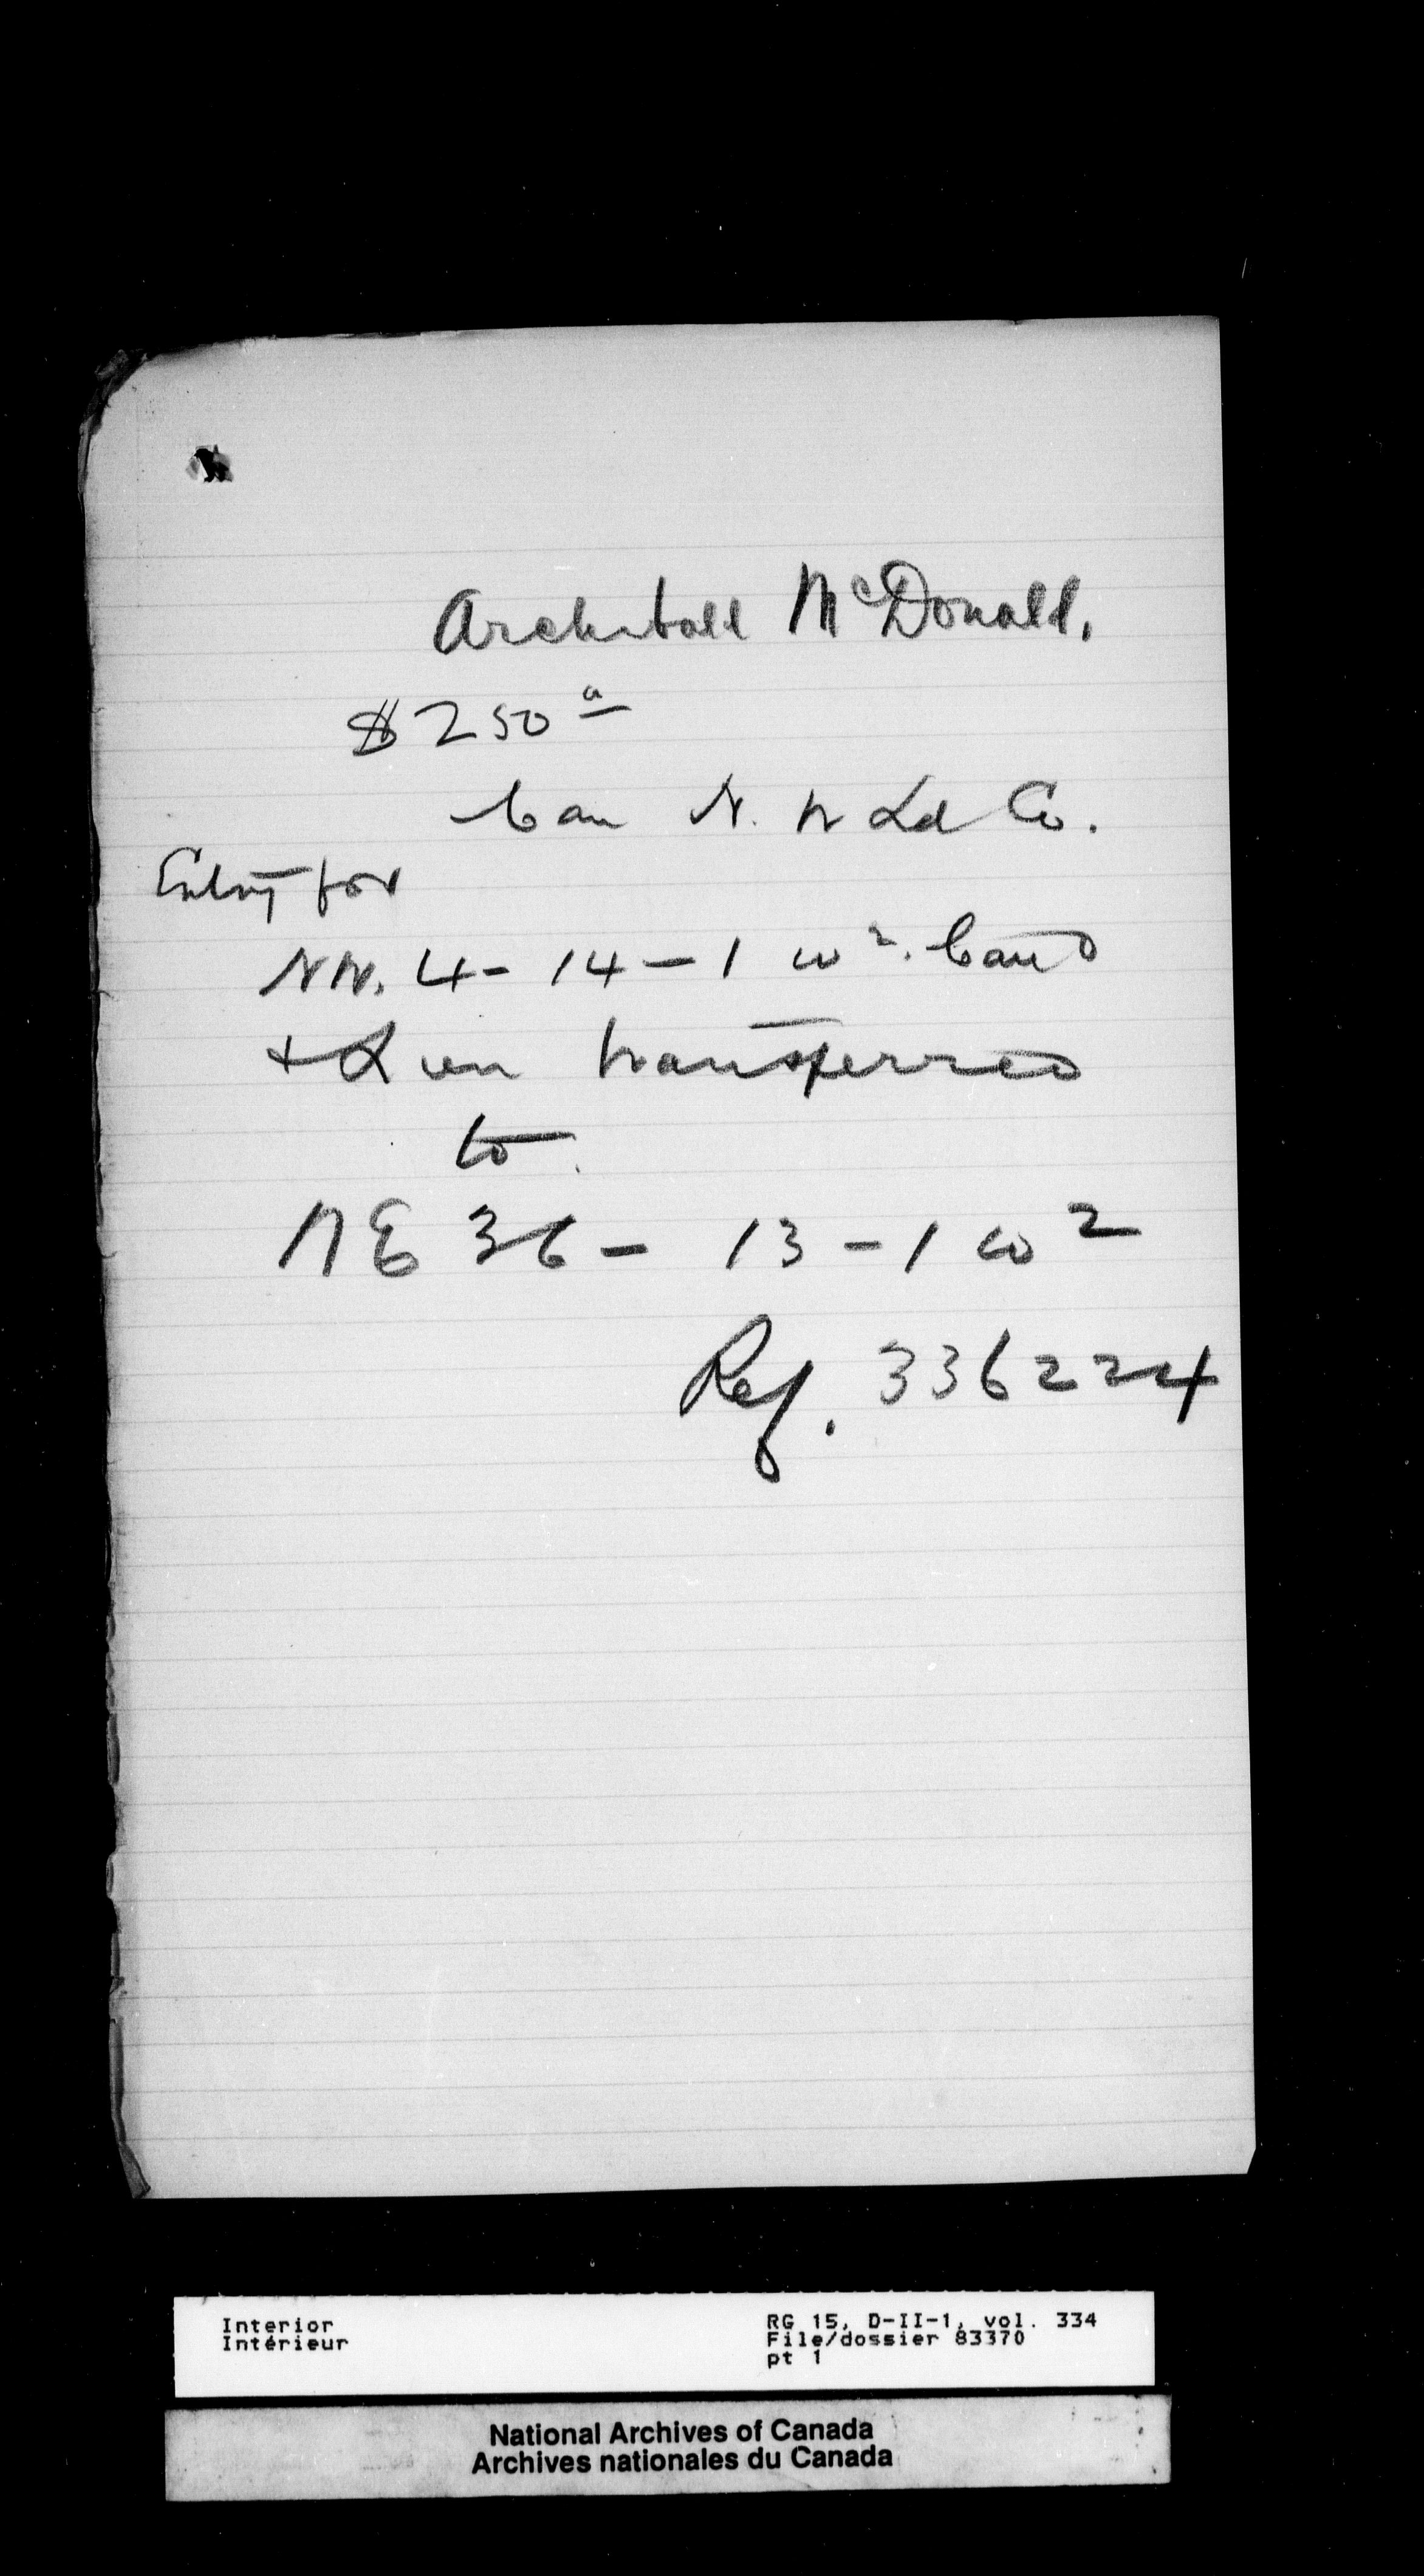 Archibald McDonald.
$250 00
Can N. W Ld Co.
Entry for
NW. 4 - 14 - 1 W 2. Cand
+ Lien transferred
to
NE 36 - 13 - 1 W 2
Ref. 336224
Interior
Intérieur
RG 15, D-II-1, vol. 334
File/dossier 83370
pt 1
National Archives of Canada
Archives nationales du Canada